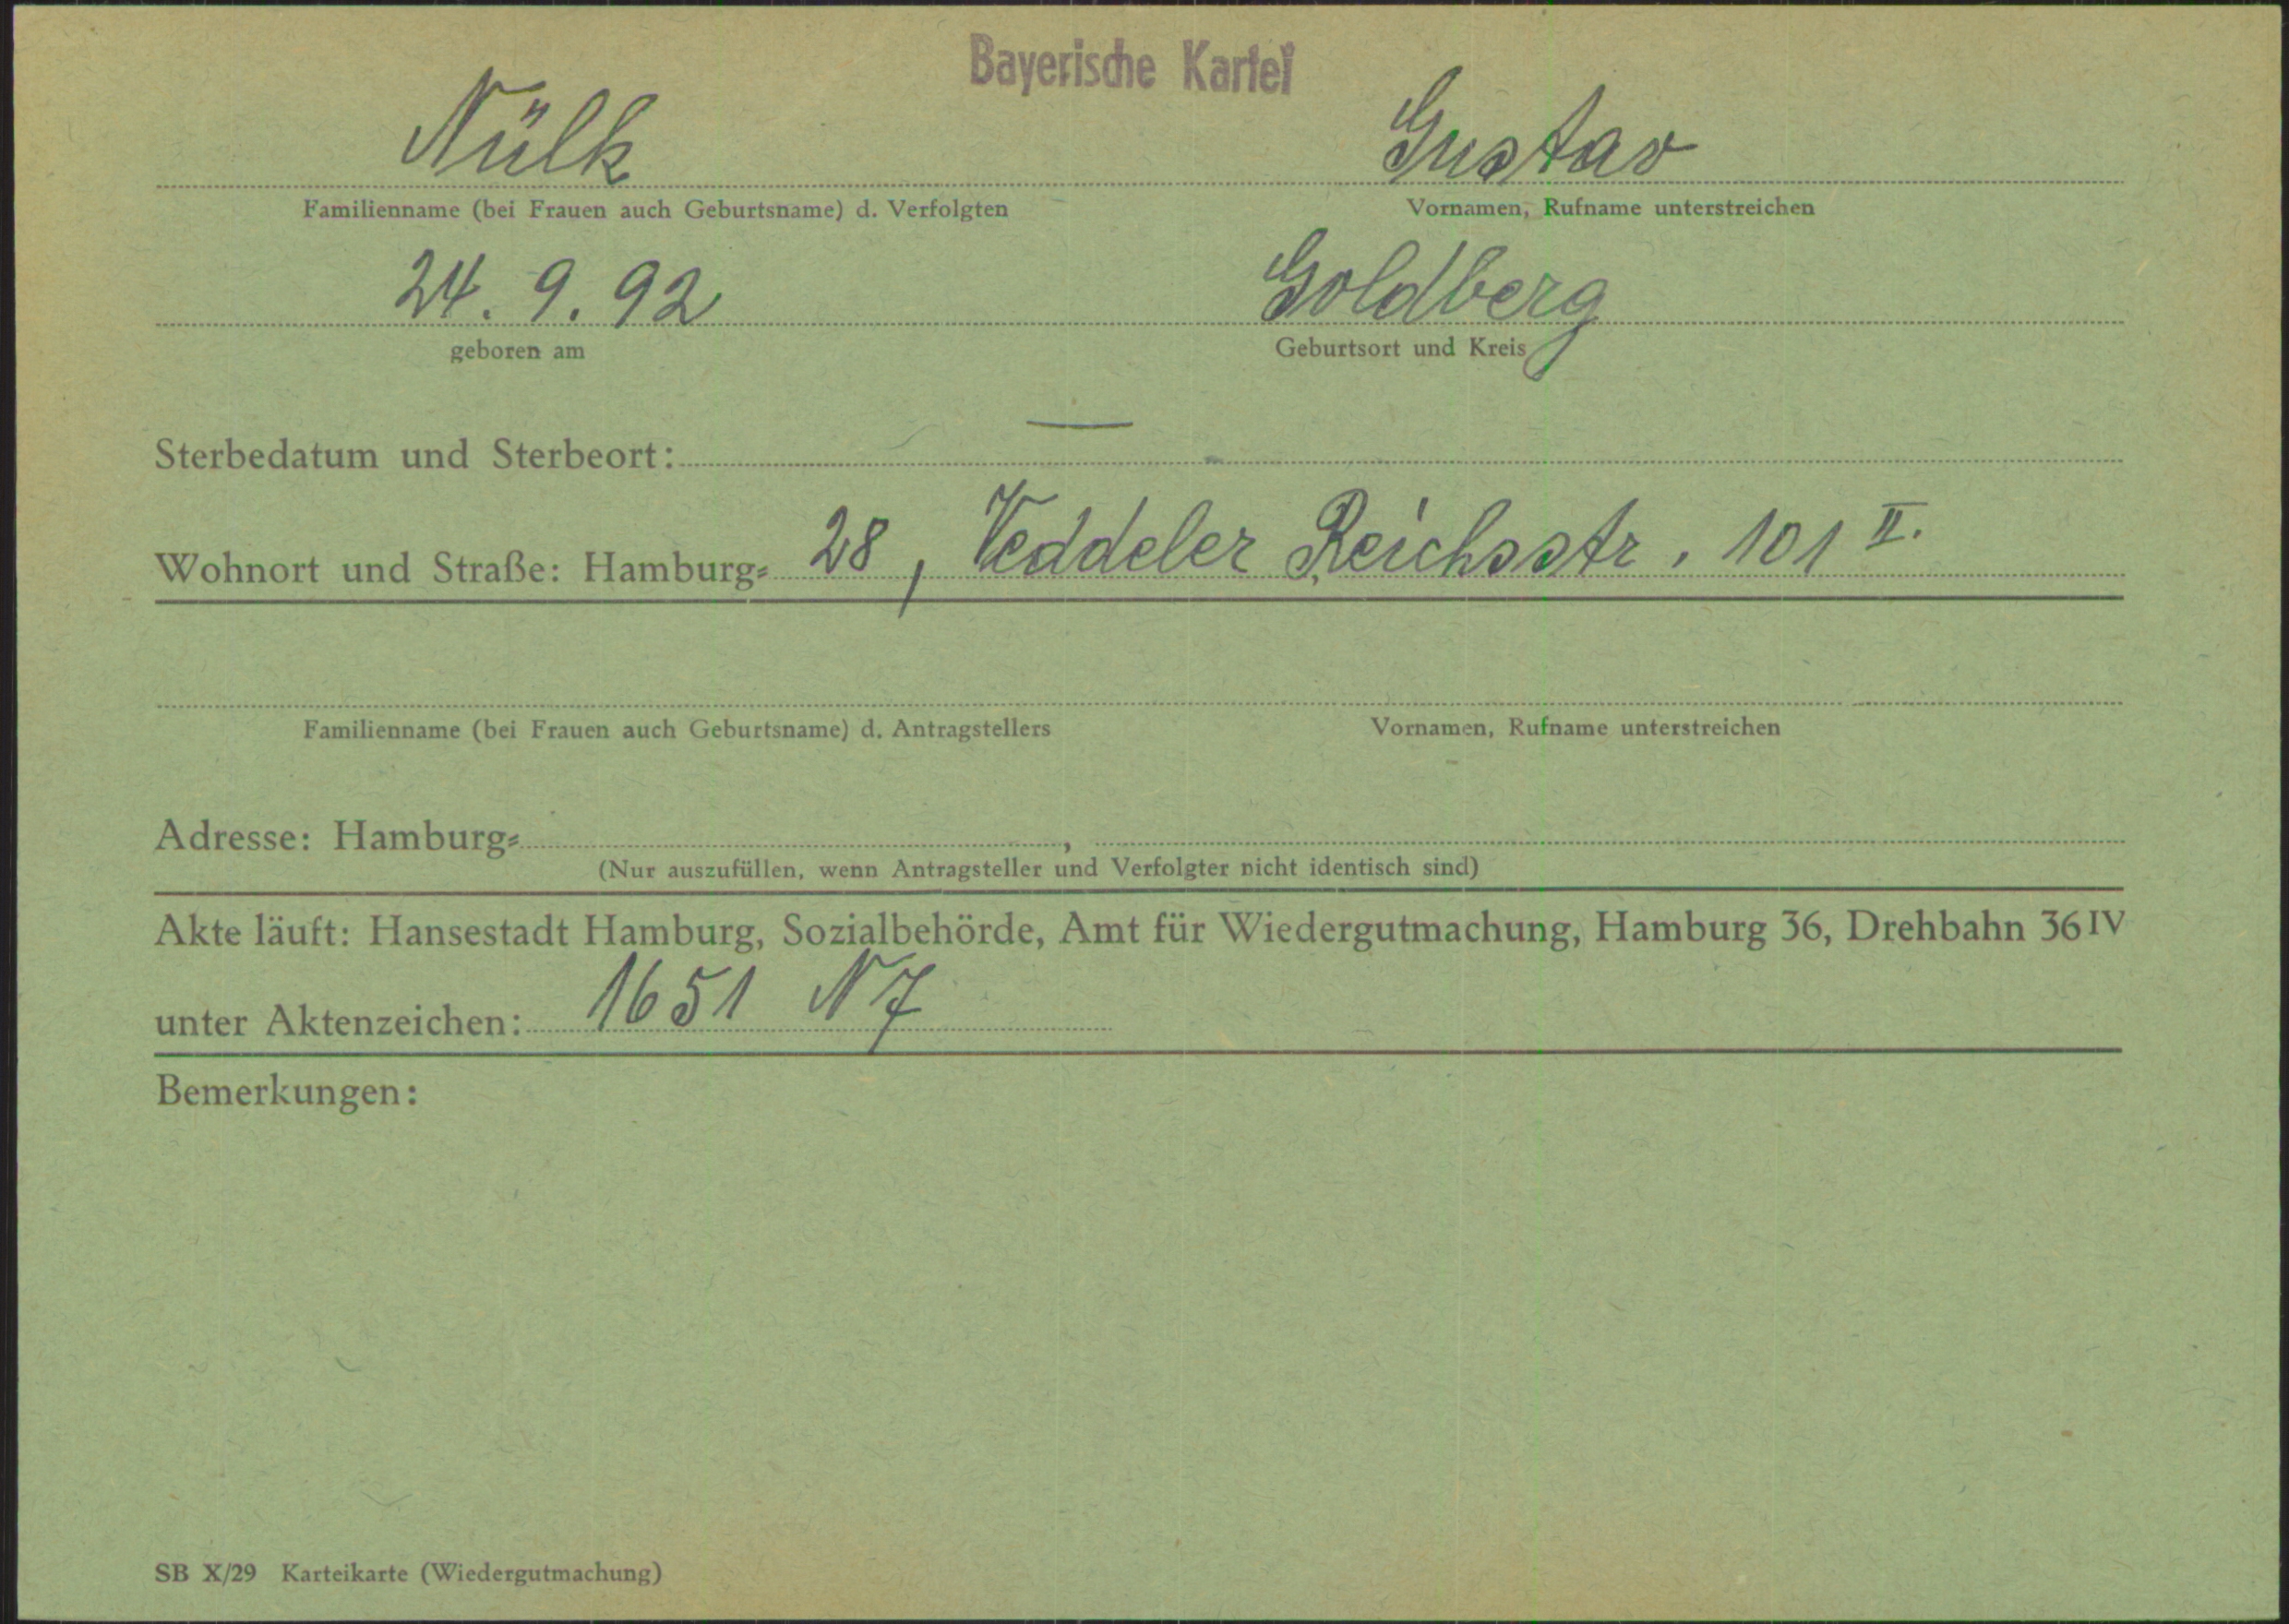 Bayerische Kartei
Nülk Gustav
Familienname (bei Frauen auch Geburtsname) d. Verfolgten Vornamen, Rufname unterstreichen
24. 9. 92 Goldberg
geboren am Geburtsort und Kreis
Sterbedatum und Sterbeort: —
Wohnort und Straße: Hamburg= 28, Veddeler Reichsstr. 101 II.
Familienname (bei Frauen auch Geburtsname) d. Antragstellers Vornamen, Rufname unterstreichen
Adresse: Hamburg= ,
(Nur auszufüllen, wenn Antragsteller und Verfolgter nicht identisch sind)
Akte läuft: Hansestadt Hamburg, Sozialbehörde, Amt für Wiedergutmachung, Hamburg 36, Drehbahn 36 IV
unter Aktenzeichen: 1651 N7
Bemerkungen:
SB X/29 Karteikarte (Wiedergutmachung)